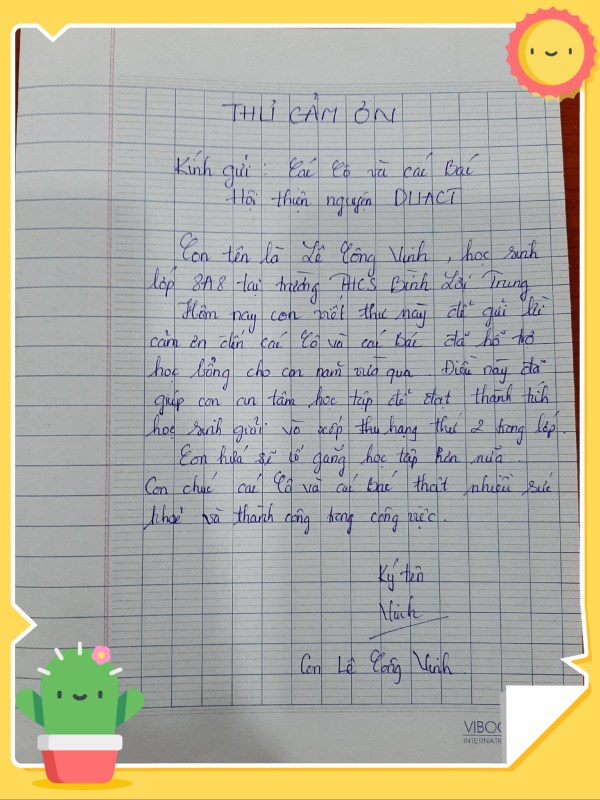 THƯ CẢM ƠN
Kính gửi : Các Cô và các Bác
Hội thiện nguyện DUACT
Con tên là Lê Công Vinh , học sinh
lớp 8A8 tại trường THCS Bình Lợi Trung
Hôm nay con viết thư này để gửi lời
cảm ơn đến các Cô và các Bác đã hỗ trợ
học bổng cho con năm vừa qua . Điều này đã
giúp con an tâm học tập để đạt thành tích
học sinh giỏi và xếp thu hạng thứ 2 trong lớp.
Con hứa sẽ cố gắng học tập hơn nữa .
Con chúc các Cô và các Bác thật nhiều sức
khoẻ và thành công trong công việc .
Ký tên
Vinh
Con Lê Công Vinh .